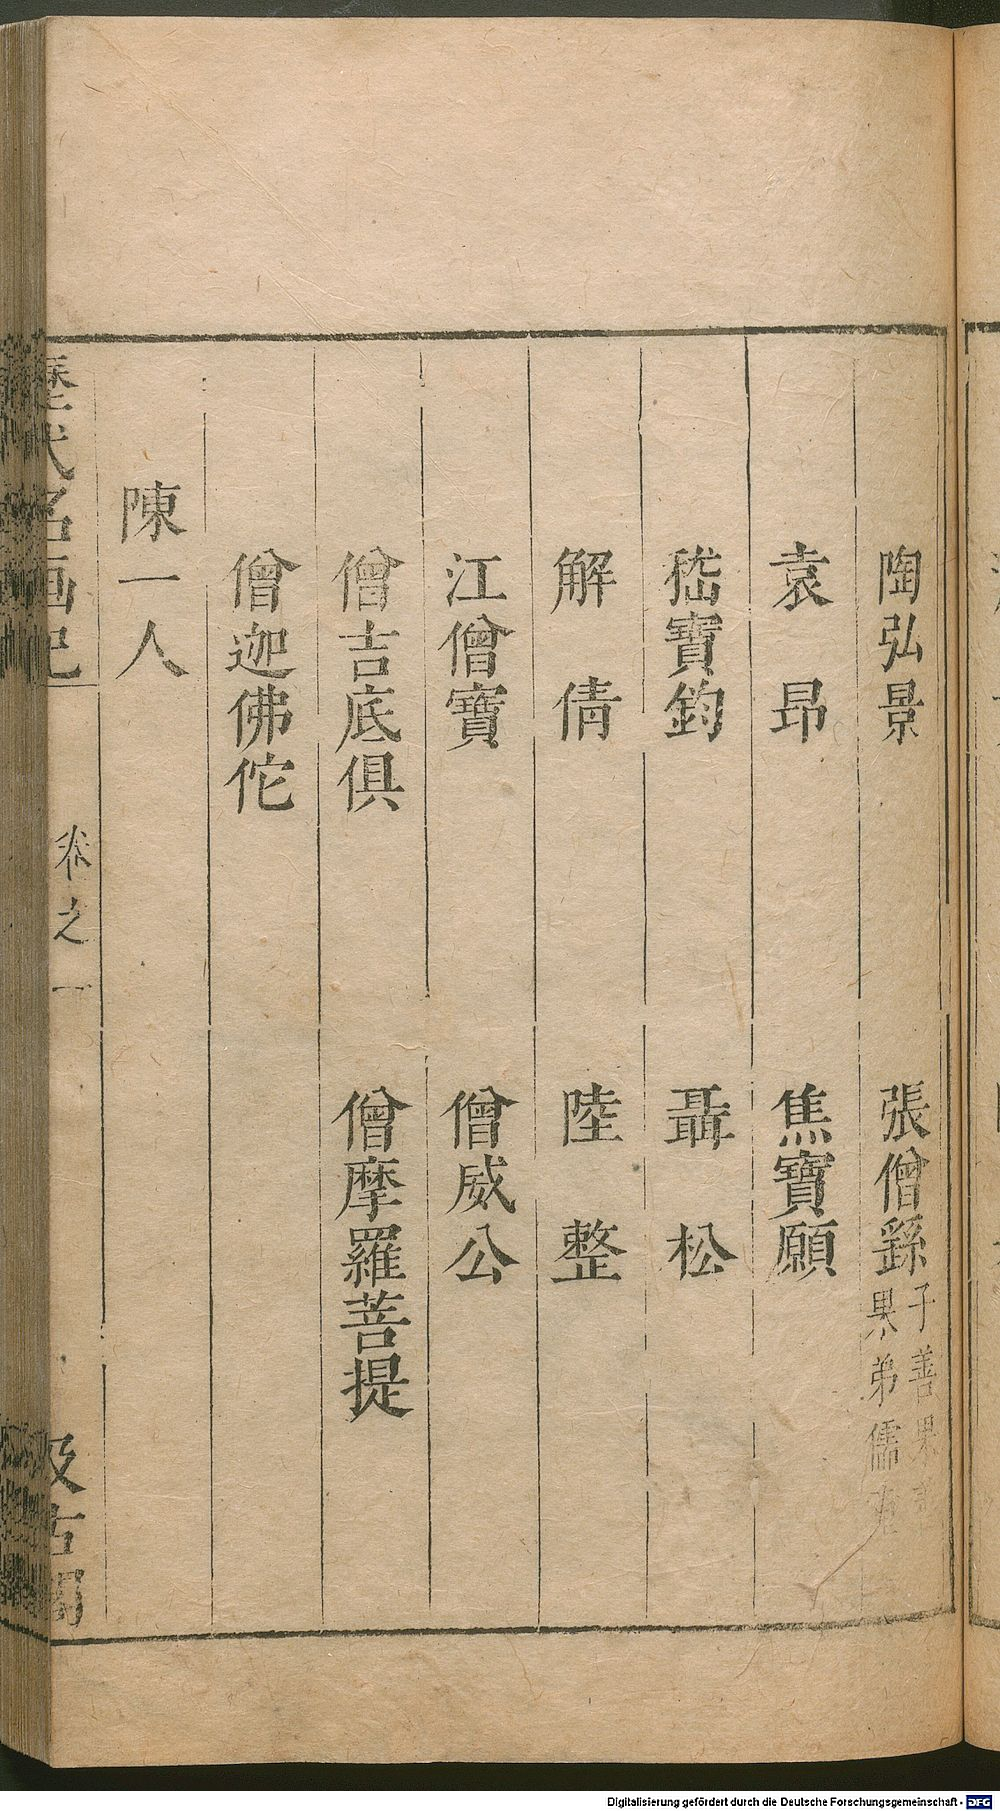 陶弘景 張僧繇 子善果
果弟儒
袁昂 焦寶願
嵇寶鈞 聶松
解倩 陸整
江僧寶 僧威公
僧吉底俱 僧摩羅菩提
僧迦佛佗
陳一人
歷代名画記 卷之一 汲古閣
Digitalisierung gefördert durch die Deutsche Forschungsgemeinschaft - DFG